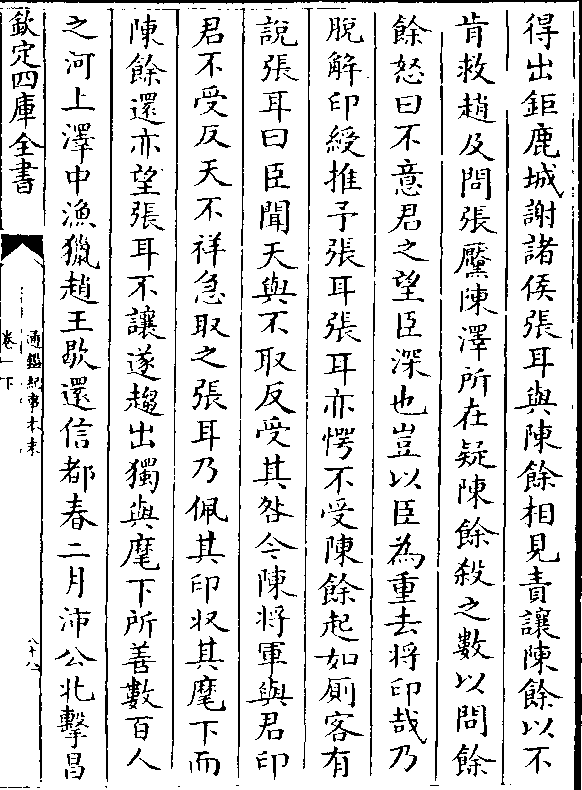 得出鉅鹿城謝諸侯張耳與陳餘相見責讓陳餘以不
肯救趙及問張黶陳澤所在疑陳餘殺之數以問餘
餘怒曰不意君之望臣深也豈以臣為重去將印哉乃
脫解印綬推予張耳張耳亦愕不受陳餘起如厠客有
說張耳曰臣聞天與不取反受其咎今陳將軍與君印
君不受反天不祥急取之張耳乃佩其印收其麾下而
陳餘還亦望張耳不讓遂趨出獨與麾下所善數百人
之河上澤中漁獵趙王歇還信都春二月沛公北擊昌
欽定四庫全書
通鑑紀事本末
卷一下
八十八